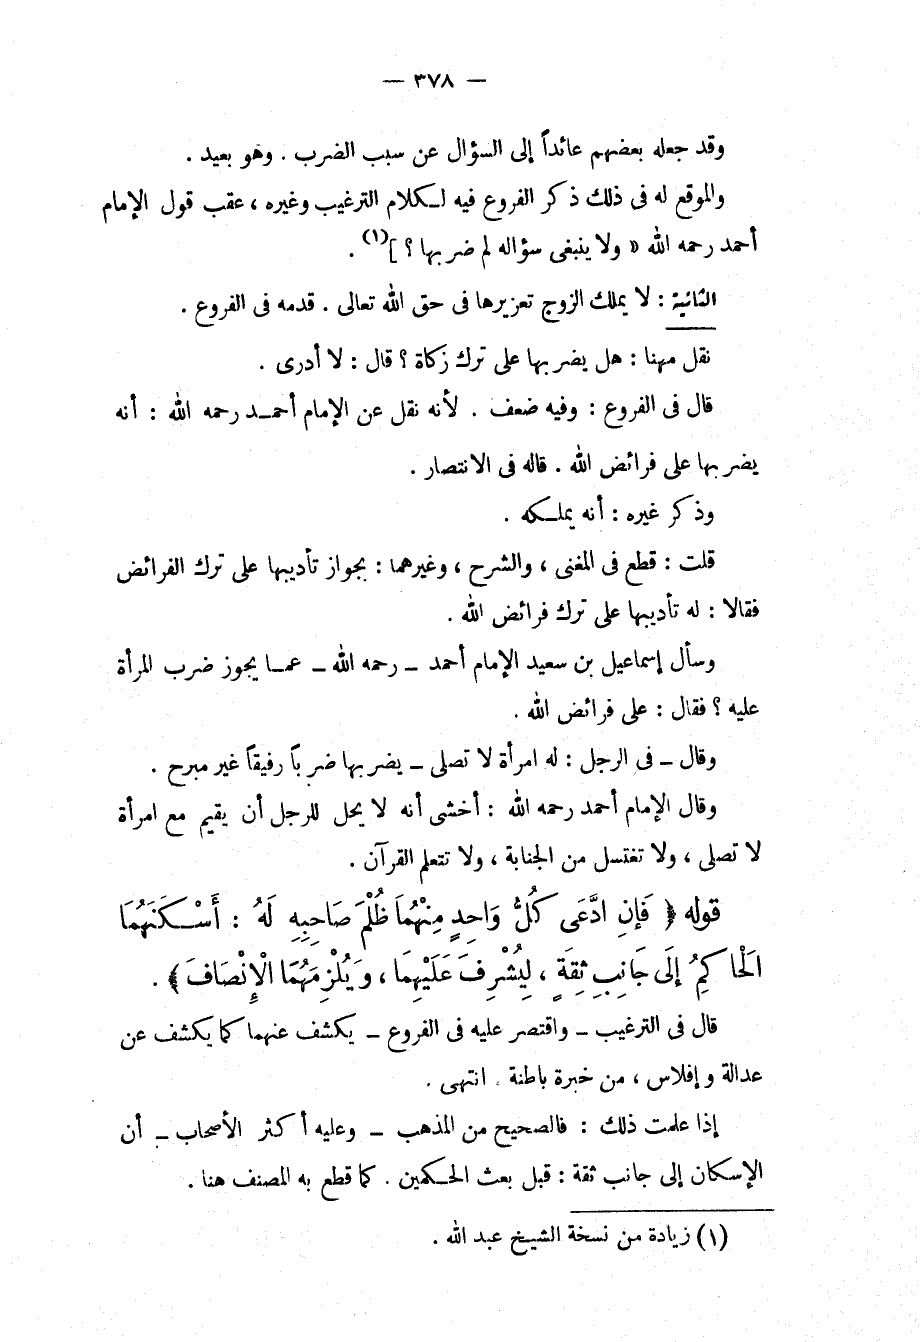 — ٣٧٨ —
وقد جعله بعضهم عائداً إلى السؤال عن سبب الضرب . وهو بعيد .
والموقع له فى ذلك ذكر الفروع فيه لكلام الترغيب وغيره ، عقب قول الإمام
أحمد رحمه الله « ولا ينبغى سؤاله لم ضربها ؟ ](١) .
الثانية : لا يملك الزوج تعزيرها فى حق الله تعالى . قدمه فى الفروع .
نقل مهنا : هل يضربها على ترك زكاة ؟ قال : لا أدرى .
قال فى الفروع : وفيه ضعف . لأنه نقل عن الإمام أحمد رحمه الله : أنه
يضربها على فرائض الله . قاله فى الانتصار .
وذكر غيره : أنه يملكه .
قلت : قطع فى المغنى ، والشرح ، وغيرهما : بجواز تأديبها على ترك الفرائض
فقالا : له تأديبها على ترك فرائض الله .
وسأل إسماعيل بن سعيد الإمام أحمد – رحمه الله – عما يجوز ضرب المرأة
عليه ؟ فقال : على فرائض الله .
وقال – فى الرجل : له امرأة لا تصلى – يضربها ضرباً رفيقاً غير مبرح .
وقال الإمام أحمد رحمه الله : أخشى أنه لا يحل للرجل أن يقيم مع امرأة
لا تصلى ، ولا تغتسل من الجنابة ، ولا تتعلم القرآن .
قوله ﴿ فَإِنِ ادَّعَى كُلُّ وَاحِدٍ مِنْهُمَا ظُلْمَ صَاحِبِهِ لَهُ : أَسْكَنَهُمَا
الْحَاكِمُ إِلَى جَانِبِ ثِقَةٍ ، لِيُشْرِفَ عَلَيْهِمَا ، وَيُلْزِمَهُمَا الْإِنْصَافَ ﴾ .
قال فى الترغيب – واقتصر عليه فى الفروع – يكشف عنهما كما يكشف عن
عدالة وإفلاس ، من خبرة باطنة . انتهى .
إذا علمت ذلك : فالصحيح من المذهب – وعليه أكثر الأصحاب – أن
الإسكان إلى جانب ثقة : قبل بعث الحكمين . كما قطع به المصنف هنا .
(١) زيادة من نسخة الشيخ عبد الله .